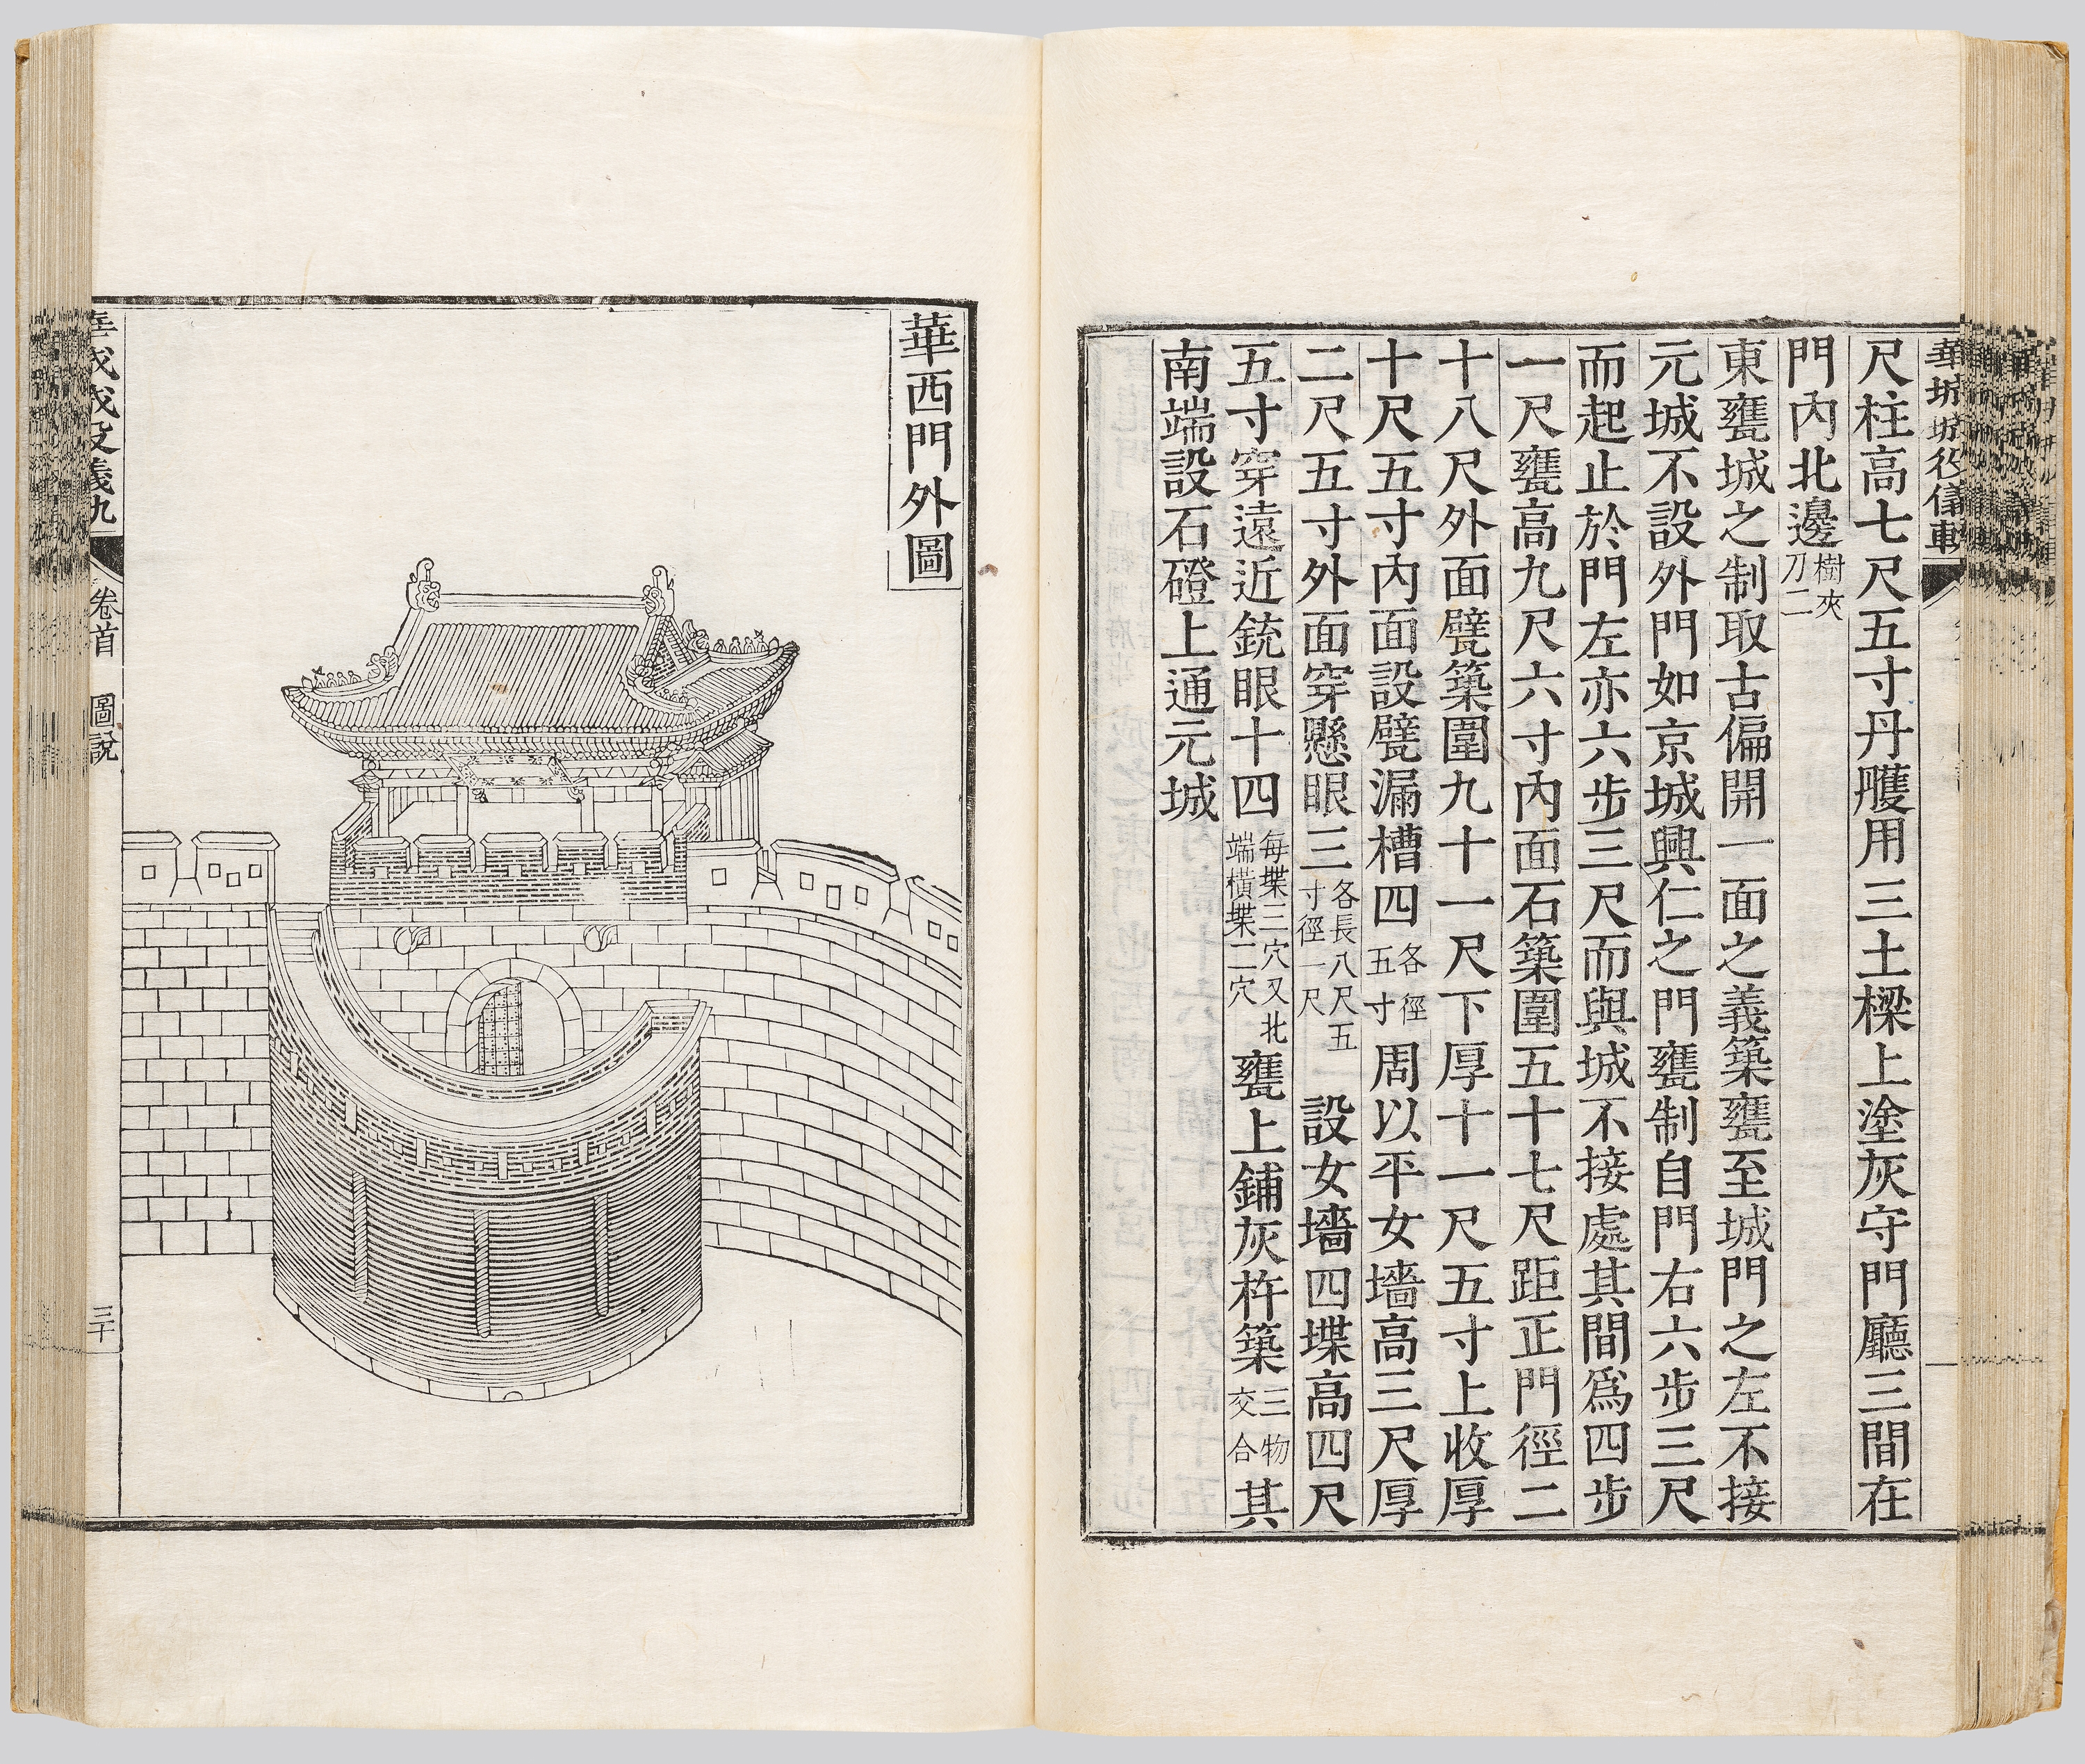 尺柱高七尺五寸丹雘用三土樑上塗灰守門廳三間在
門內北邊樹夾刀二
東甕城之制取古偏開一面之義築甕至城門之左不接
元城不設外門如京城興仁之門甕制自門右六步三尺
而起止於門左亦六步三尺而與城不接處其間爲四步
一尺甕高九尺六寸內面石築圍五十七尺距正門徑二
十八尺外面甓築圍九十一尺下厚十一尺五寸上收厚
十尺五寸內面設甓漏槽四各徑五寸周以平女墻高三尺厚
二尺五寸外面穿懸眼三各長八尺五寸徑一尺設女墻四堞高四尺
五寸穿遠近銃眼十四每堞三穴又北端橫堞二穴甕上鋪灰杵築三物交合其
南端設石磴上通元城
華西門外圖
卷首 圖說
三十